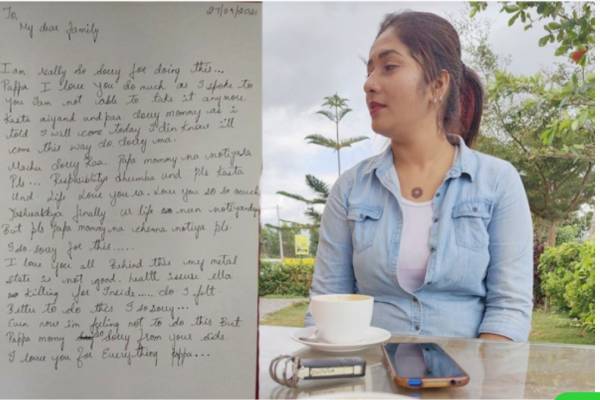 To,
27/09/2021
My dear family
I am really so sorry for doing this...
Pappa I love you so much as I spoke to
you Iam not able to take it anymore.
Kasta aiyand paa sorry mommy as i
told I will come today I din knew i'll
come this way so sorry ma.
Machu sorry kaa. Papa mommy na notiyala
Pls... Responsiblity dhumba und pls Kasta
Und life Love you ra. Love you so so much
finally ur life nun notiyandy
But pls Papa mommy na chenna notiya pls
I so sorry for this.....
I love you all Behind this my metal
state is not good. health issuse ella
so killing from Inside..... So I felt
Better to do this I so sorry...
Even now i'm feeling not to do this But
Pappa momy so sorry from your side
I love you for Everything Pappa...